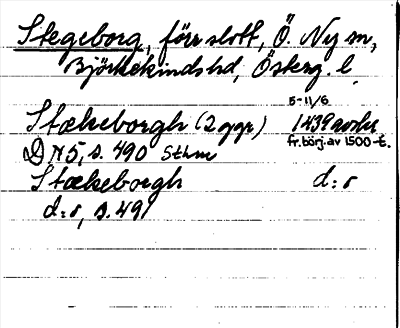 Stegeborg, förr slott, Ö. Ny sn,
Björkekinds hd, Österg. l.
5-11/6
Stækeborgh (2 ggr) 1439 avskr
fr. börj. av 1500-t.
D N 5, s. 490 Sthm
Stækeborgh d:o
d:o, s. 491